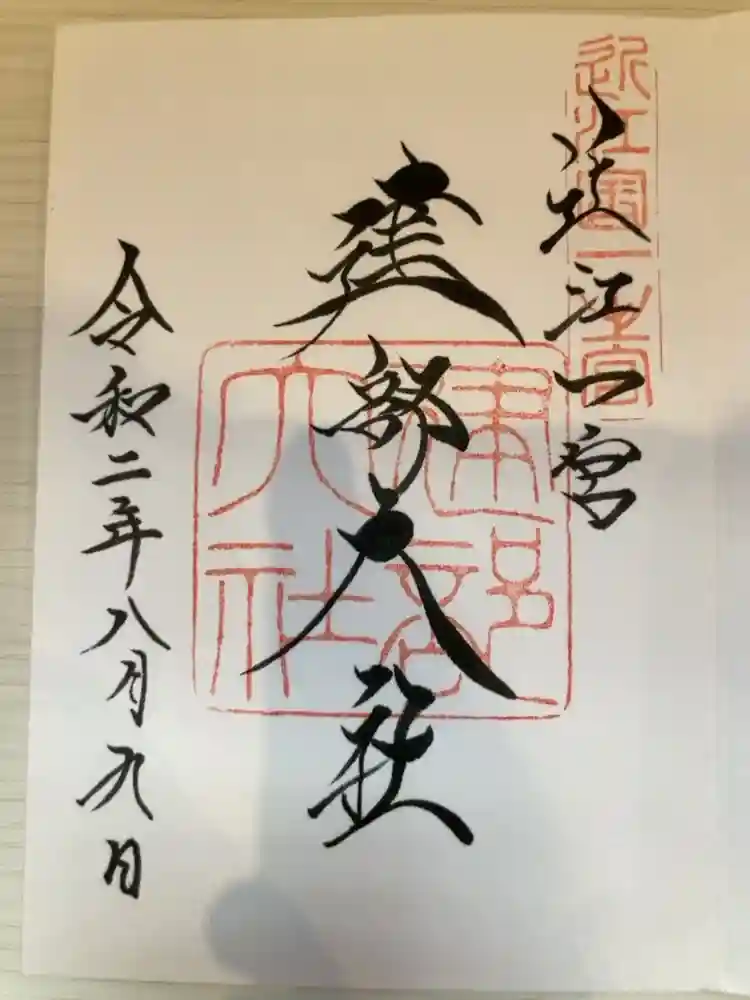 近江国一之宮
近江一宮
建部大社
建部
大社
令和二年八月九日